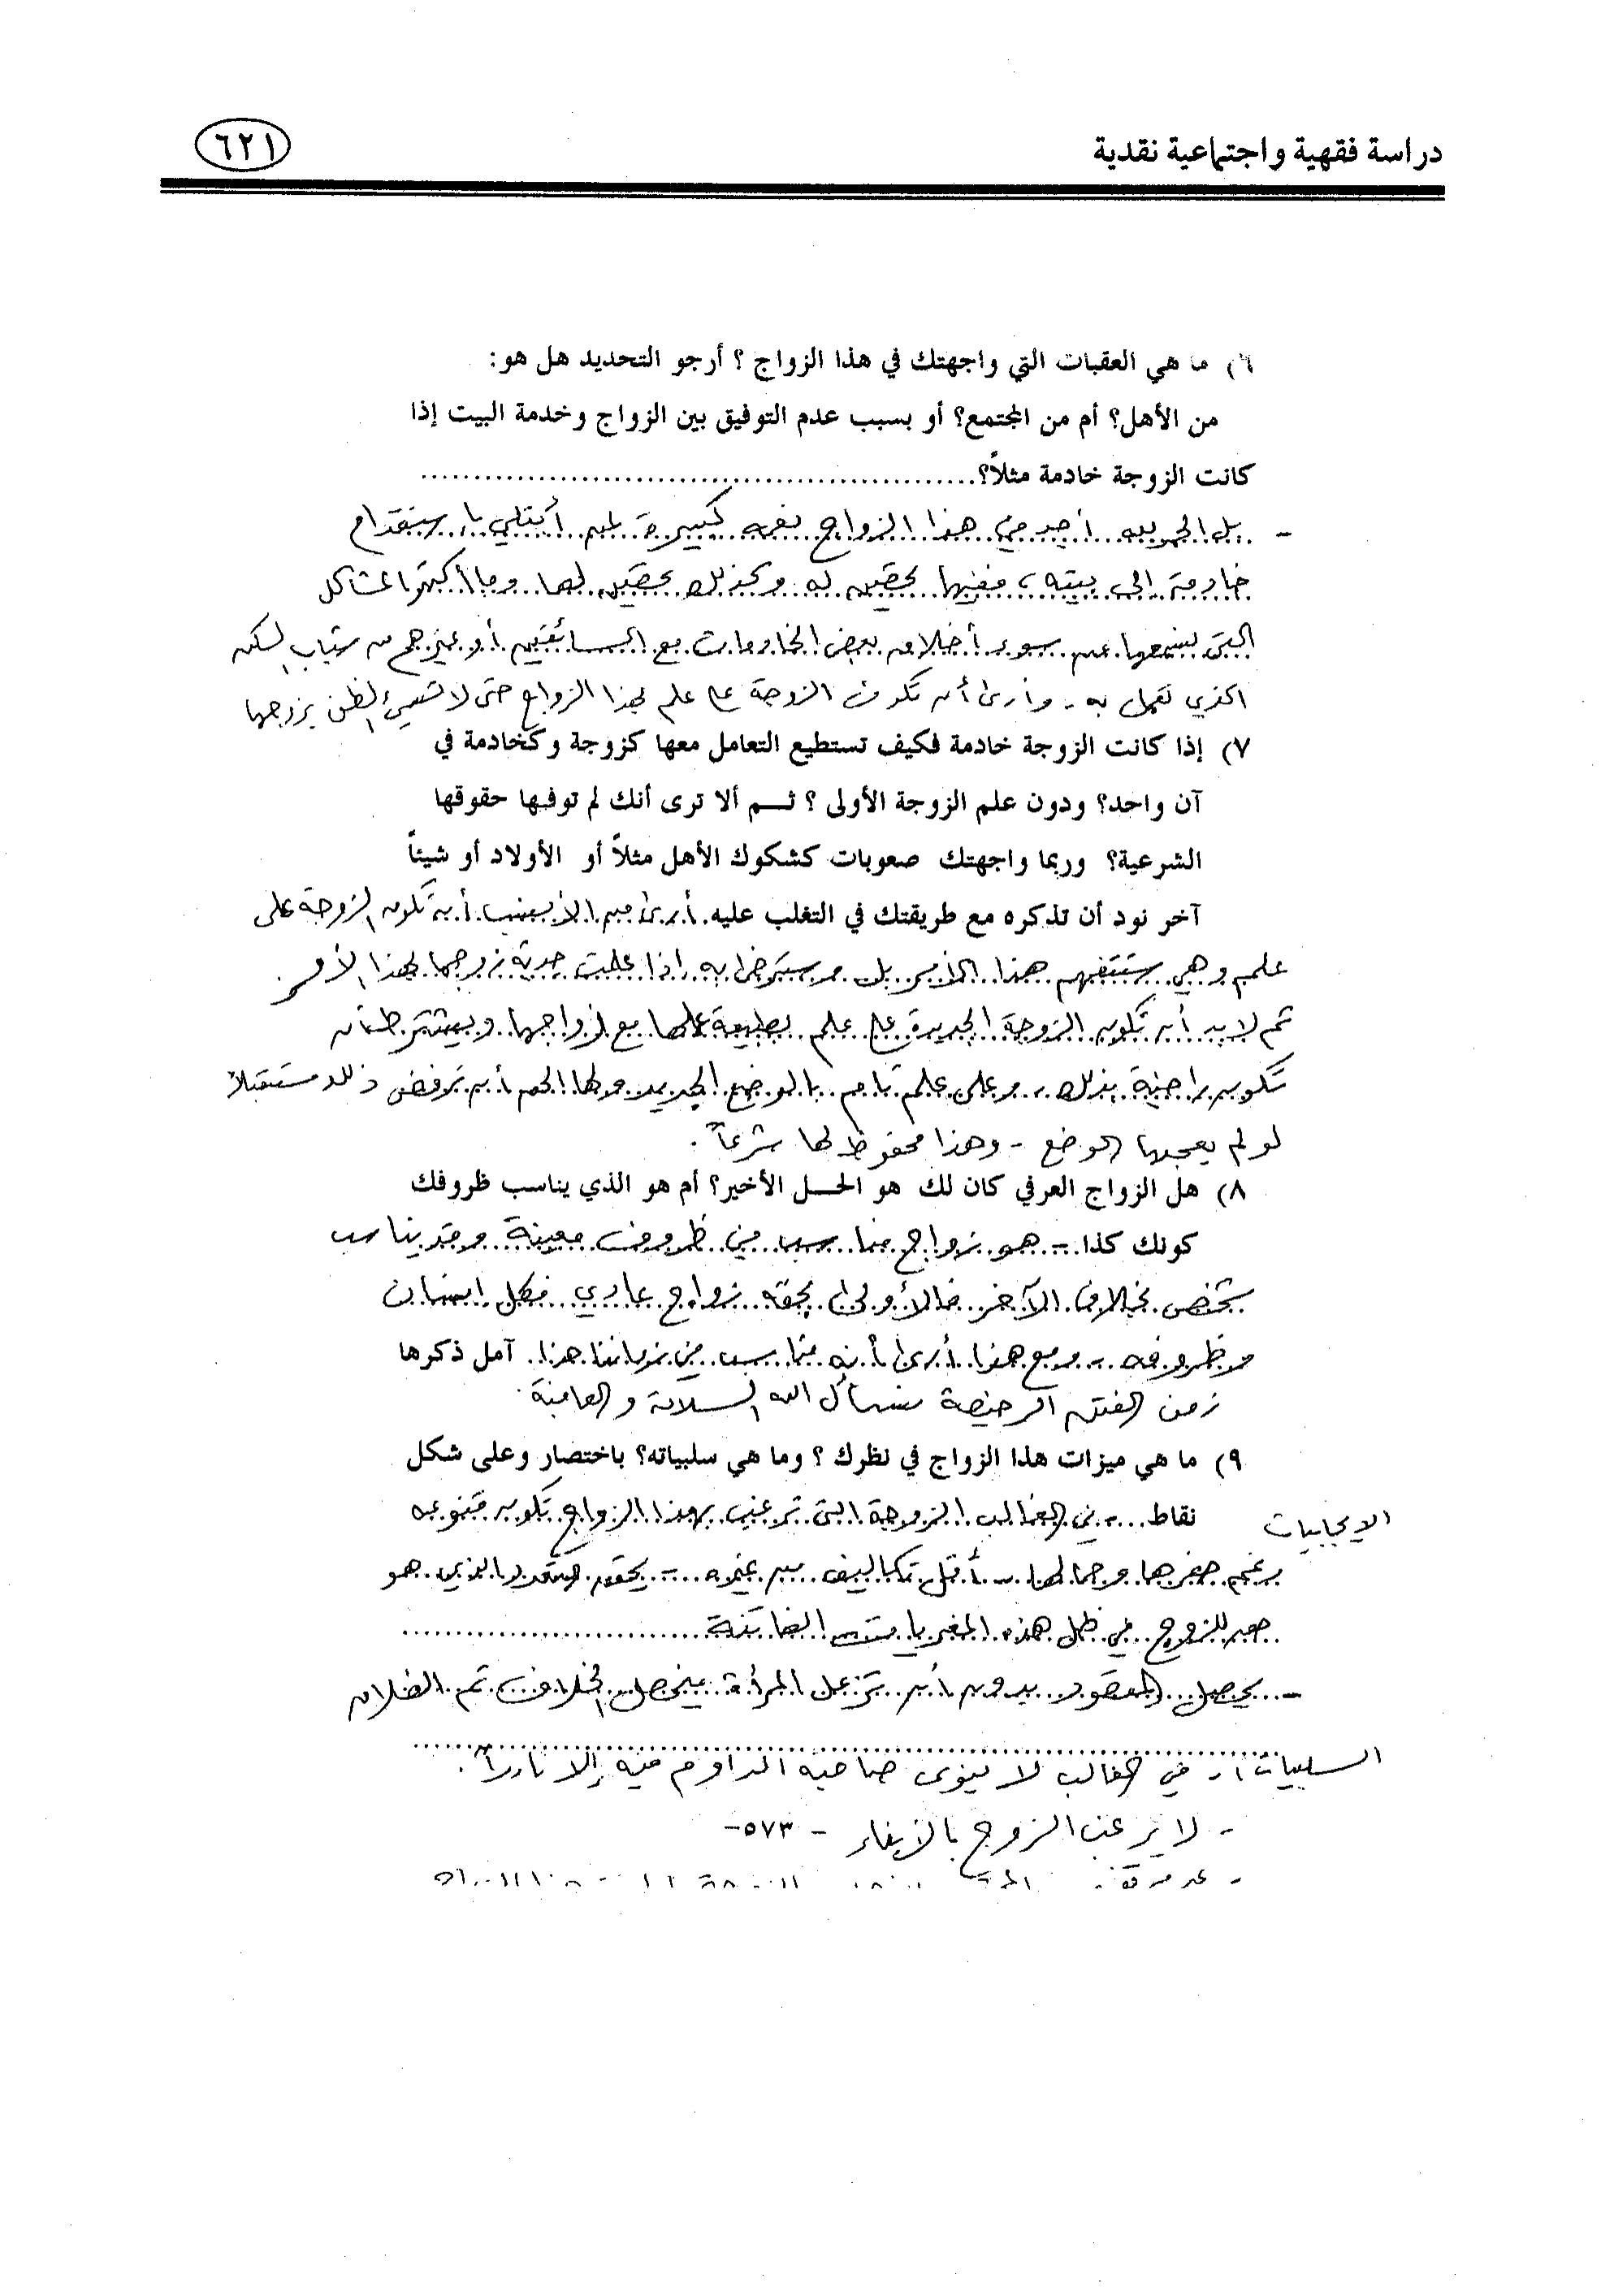 دراسة فقهية واجتماعية نقدية
٦٢١
٦) ما هي العقبات التي واجهتك في هذا الزواج ؟ أرجو التحديد هل هو:
من الأهل؟ أم من المجتمع؟ أو بسبب عدم التوفيق بين الزواج وخدمة البيت إذا
كانت الزوجة خادمة مثلاً؟
- بل الحمد لله أجد في هذا الزواج نعمة كبيرة لمن أبتلي باستقدام
خادمة إلى بيته، ففيها تحصين له وكذلك تحصين لها وما أكثر المشاكل
التي نسمعها عن سوء أخلاق بعض الخادمات مع السائقين أو غيرهم من شباب السكن
الذي تعمل به - وأرى أن تكون الزوجة على علم بهذا الزواج حتى لا تسيء الظن بزوجها
٧) إذا كانت الزوجة خادمة فكيف تستطيع التعامل معها كزوجة وكخادمة في
آن واحد؟ ودون علم الزوجة الأولى ؟ ثم ألا ترى أنك لم توفها حقوقها
الشرعية؟ وربما واجهتك صعوبات كشكوك الأهل مثلاً أو الأولاد أو شيئاً
آخر نود أن تذكره مع طريقتك في التغلب عليه. أرى من الأنسب أن تكون الزوجة على
علم وهي ستتفهم هذا الأمر بل وسترضى به إذا علمت جدية زوجها لهذا الأمر
ثم لابد أن تكون الزوجة الجديدة على علم بطبيعة عملها مع زواجها ويشترط أن
تكون راضية بذلك، وعلى علم تام بالوضع الجديد ولها الحق أن ترفض ذلك مستقبلاً
لو لم يعجبها الوضع - وهذا محفوظ لها شرعاً.
٨) هل الزواج العرفي كان لك هو الحل الأخير؟ أم هو الذي يناسب ظروفك
كونك كذا - هو زواج مناسب في ظروف معينة وقد يناسب
شخص بخلاف الآخر فالأولى بحقه زواج عادي فكل إنسان
وظروفه - ومع هذا أرى أنه مناسب في زماننا هذا. آمل ذكرها
زمن الفتن الرخيصة نسأل الله السلامة والعافية.
٩) ما هي ميزات هذا الزواج في نظرك ؟ وما هي سلبياته؟ باختصار وعلى شكل
الإيجابيات
نقاط - في الغالب الزوجة التي ترغب بهذا الزواج تكون قنوعة
برغم صغرها وجمالها - أقل تكاليف من غيره - يحقق المقصود الذي هو
صبر للزوج في ظل هذه المغريات الفاتنة
- يحصل المقصود بدون أن تزعل المرأة فيحصل الخلاف ثم الطلاق
السلبيات: - في الغالب لا ينوى صاحبه الدوام فيه إلا نادراً.
- لا يرغب الزوج بالإبقاء
-٥٧٣-